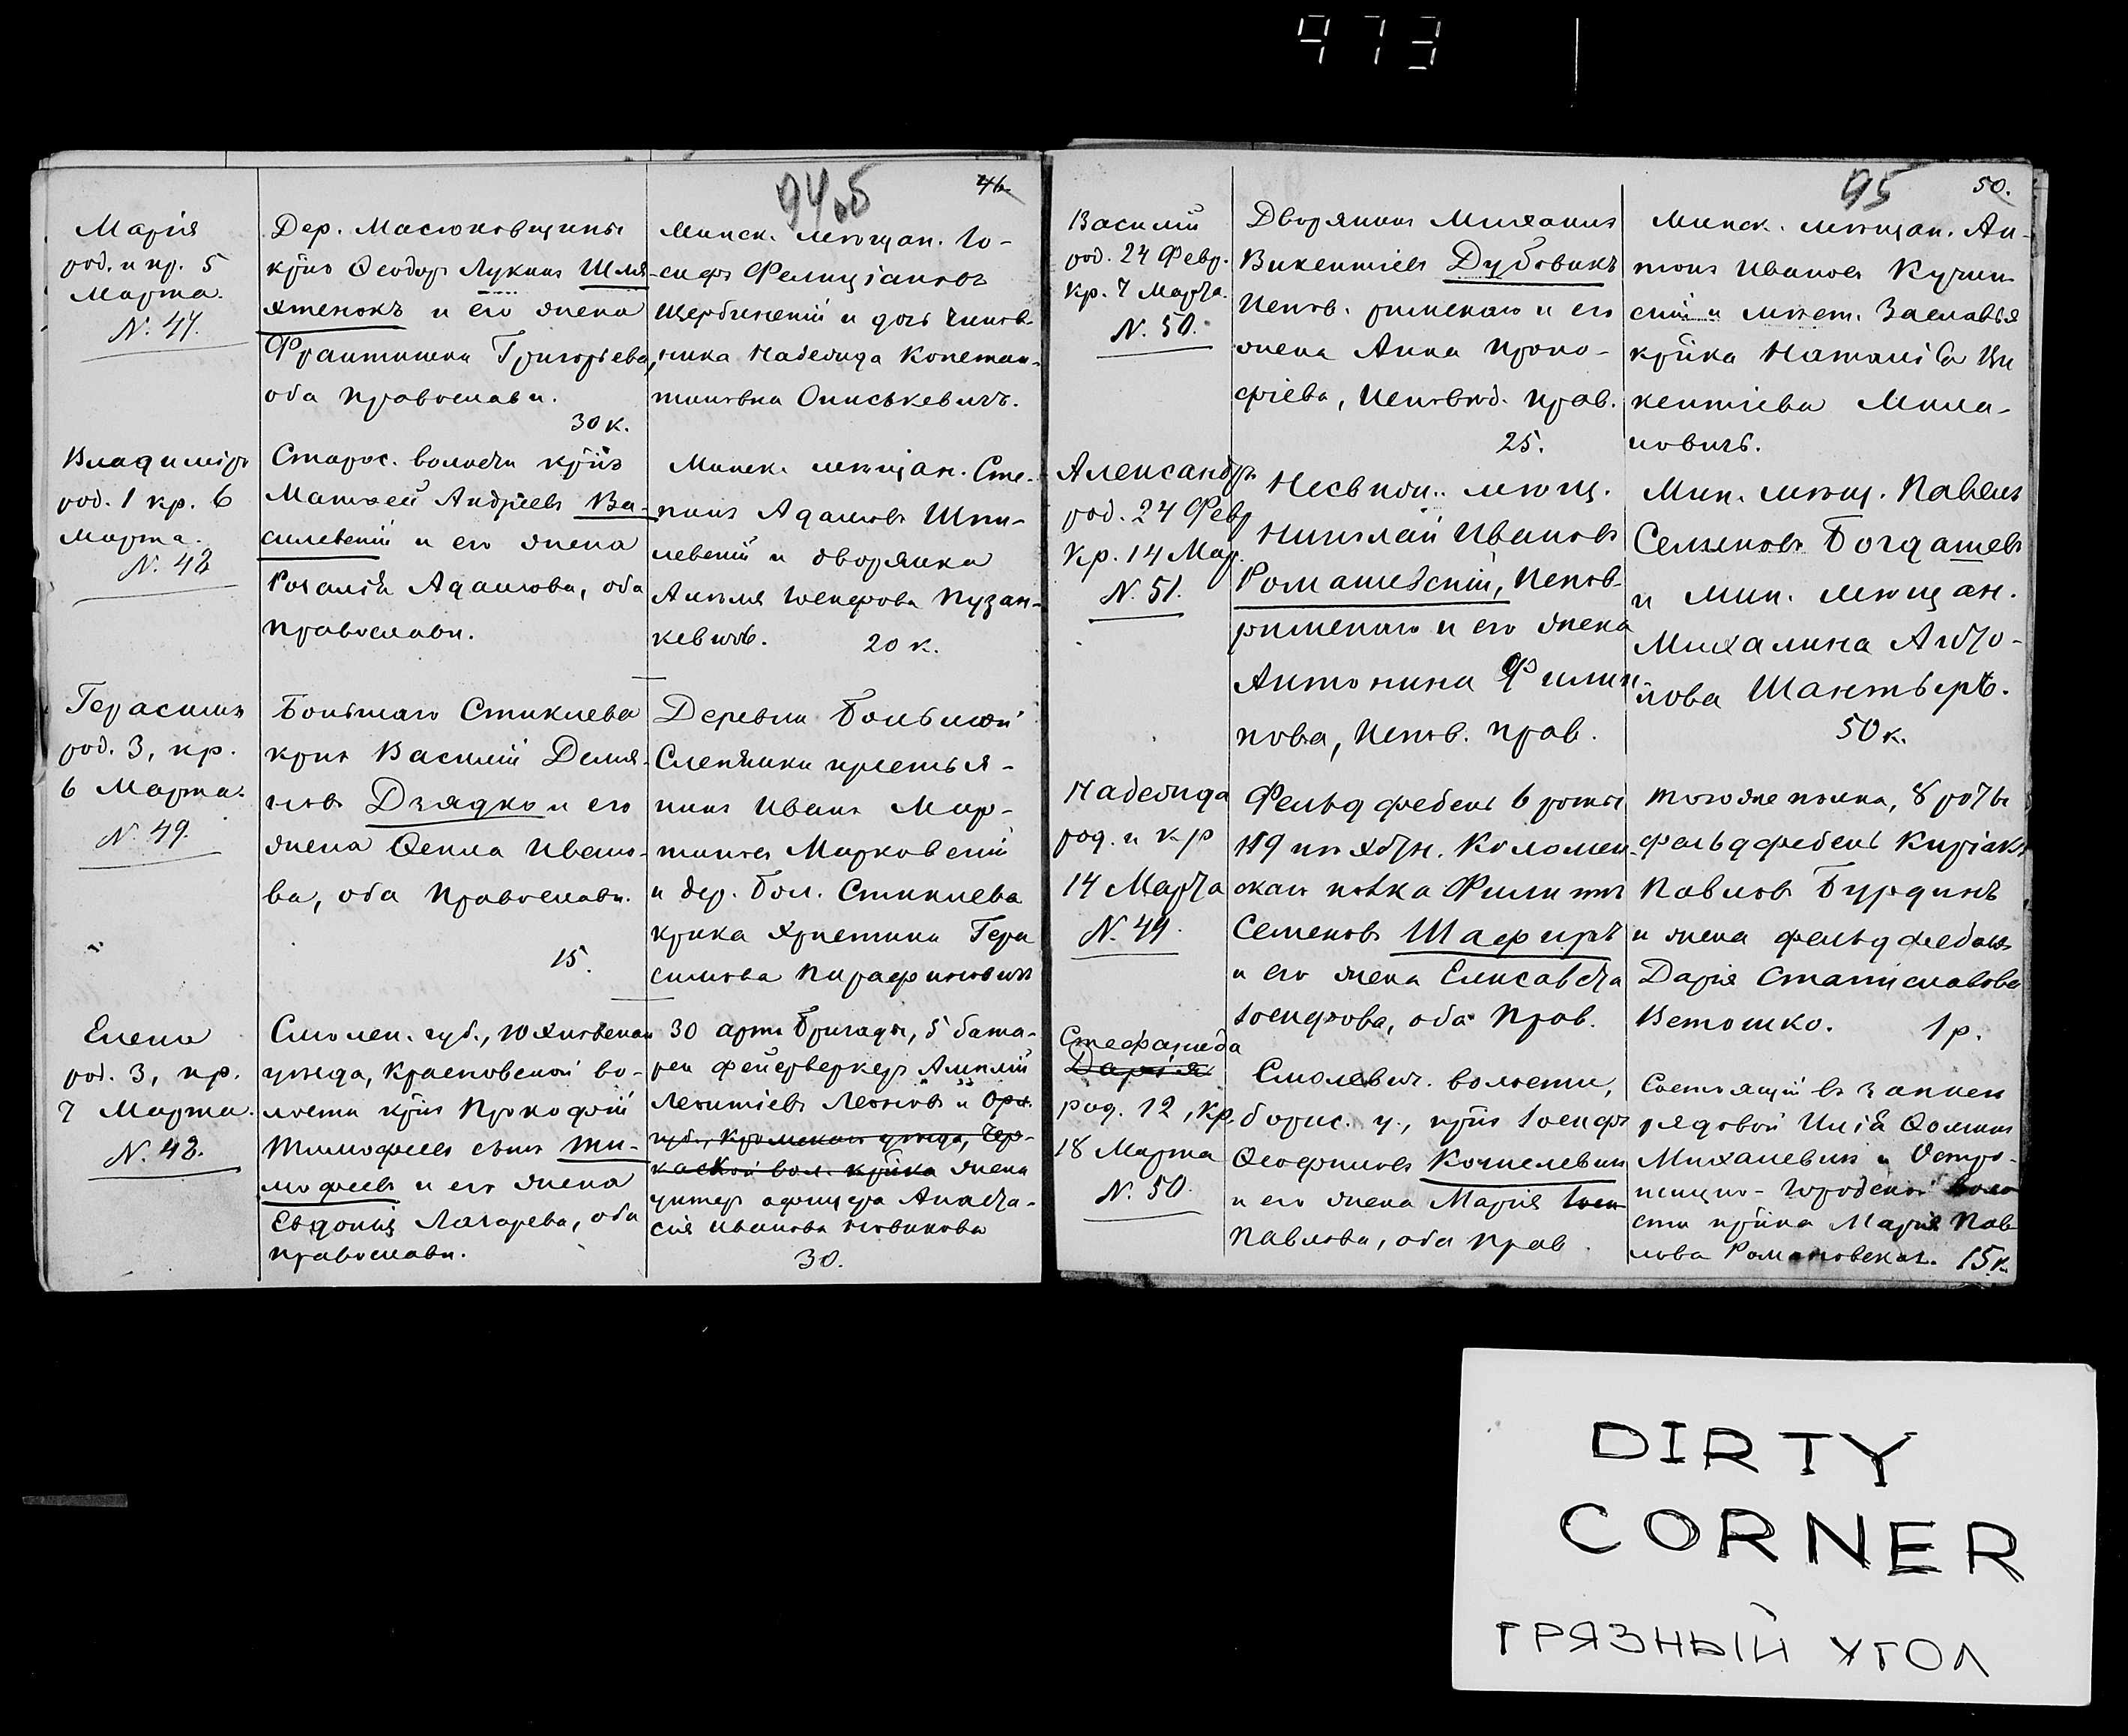 473
94об
46
Марія
род. и кр. 5
Марта.
N. 47.
Дер. Масюковщины
кр̃нъ Ѳеодоръ Лукинъ Шля-
хтенокъ и его жена
Франтишка Григорьева,
оба православн.
30 к.
Минск. мѣщан. Іо-
сифъ Фелиціановъ
Щербинскій и дочь чинов-
ника Надежда Констан-
тиновна Онискевичъ.
Владиміръ
род. 1 кр. 6
Марта.
N. 48
Старос. волости кр̃нъ
Матѳей Андреевъ Ва-
силевскій и его жена
Розалія Адамова, оба
православн.
Минск. мѣщан. Сте-
панъ Адамовъ Шпи-
левскій и дворянка
Амелія Іосифова Пузан-
кевичъ. 20 к.
Герасимъ
род. 3, кр.
6 Марта.
N. 49.
Большаго Стиклева
крнъ Василій Демя-
новъ Дзядко и его
жена Ѳекла Ивано-
ва, оба православн.
15.
Деревни Большой
Слепянки крестья-
нинъ Иванъ Мар-
тиновъ Марковскій
и дер. Бол. Стиклева
крнка Христина Гера
симова
Елена
род. 3, кр.
7 Марта.
N. 48.
Смолен. губ., Юхновскаго
уѣзда, Красновской во-
лости кр̃нъ Прокофій
Тимофеевъ сынъ Ти-
мофеевъ и его жена
Евдокія Лазарева, оба
православн.
30 арт. Бригады, 5 бата-
реи фейерверкеръ
Леонтіевъ Леоновъ и Орл.
губ., Кромскаго уѣзда, Чер-
каской вол. крнка жена
унтеръ офицера Анаста-
сія Иванова Новикова
30.
95
50.
Василій
род. 24 Февр.
кр. 7 Марта.
N. 50.
Дворянинъ Михаилъ
Викентіевъ Дубовикъ
испов. римскаго и его
жена Анна Проко-
фіева, исповѣд. прав.
25.
Минск. мѣщан. Ан-
тонъ Ивановъ Кучин-
скій и мѣст. Заславья
кр̃нка Наталія Ви
кентіева Мила-
новичъ.
Александръ
род. 24 Февр
кр. 14 Мар.
N. 51.
Несвиж. мѣщ.
Николай Ивановъ
Ромашевскій, испов-
римскаго и его жена
Антонина Филип
пова, испов. прав.
Мин. мѣщ. Павелъ
Семеновъ Богдашевъ
и мин. мѣщан.
Михалина
Шантыръ.
50 к.
Надежда
род. и кр
14 Марта
N. 49.
Фельдфебель 6 роты
119 пѣхотн. Коломен-
скаго полка Филиппъ
Семеновъ Шафиръ
и его жена Елисавета
Іосифова, оба прав.
того же полка, 8 роты
фельдфебель Киріакъ
Павловъ Бурдинъ
и жена фельдфебеля
Дарія Станиславова
Ветошко. 1 р.
Стефанида
Дарія
род. 12, кр.
18 Марта
N. 50.
Смолевич. волости,
борис. у., кр̃нъ Іосифъ
Ѳеофиловъ Кочелевичъ
и его жена Марія Іоси
Павлова, оба прав.
Состоящій въ запасѣ
рядовой Илія Ѳоминъ
Михалевичъ и Остро-
шицко-Городской воло
сти кр̃нка Марія Пав
лова Романовская. 15 к.
DIRTY
CORNER
ГРЯЗНЫЙ УГОЛ